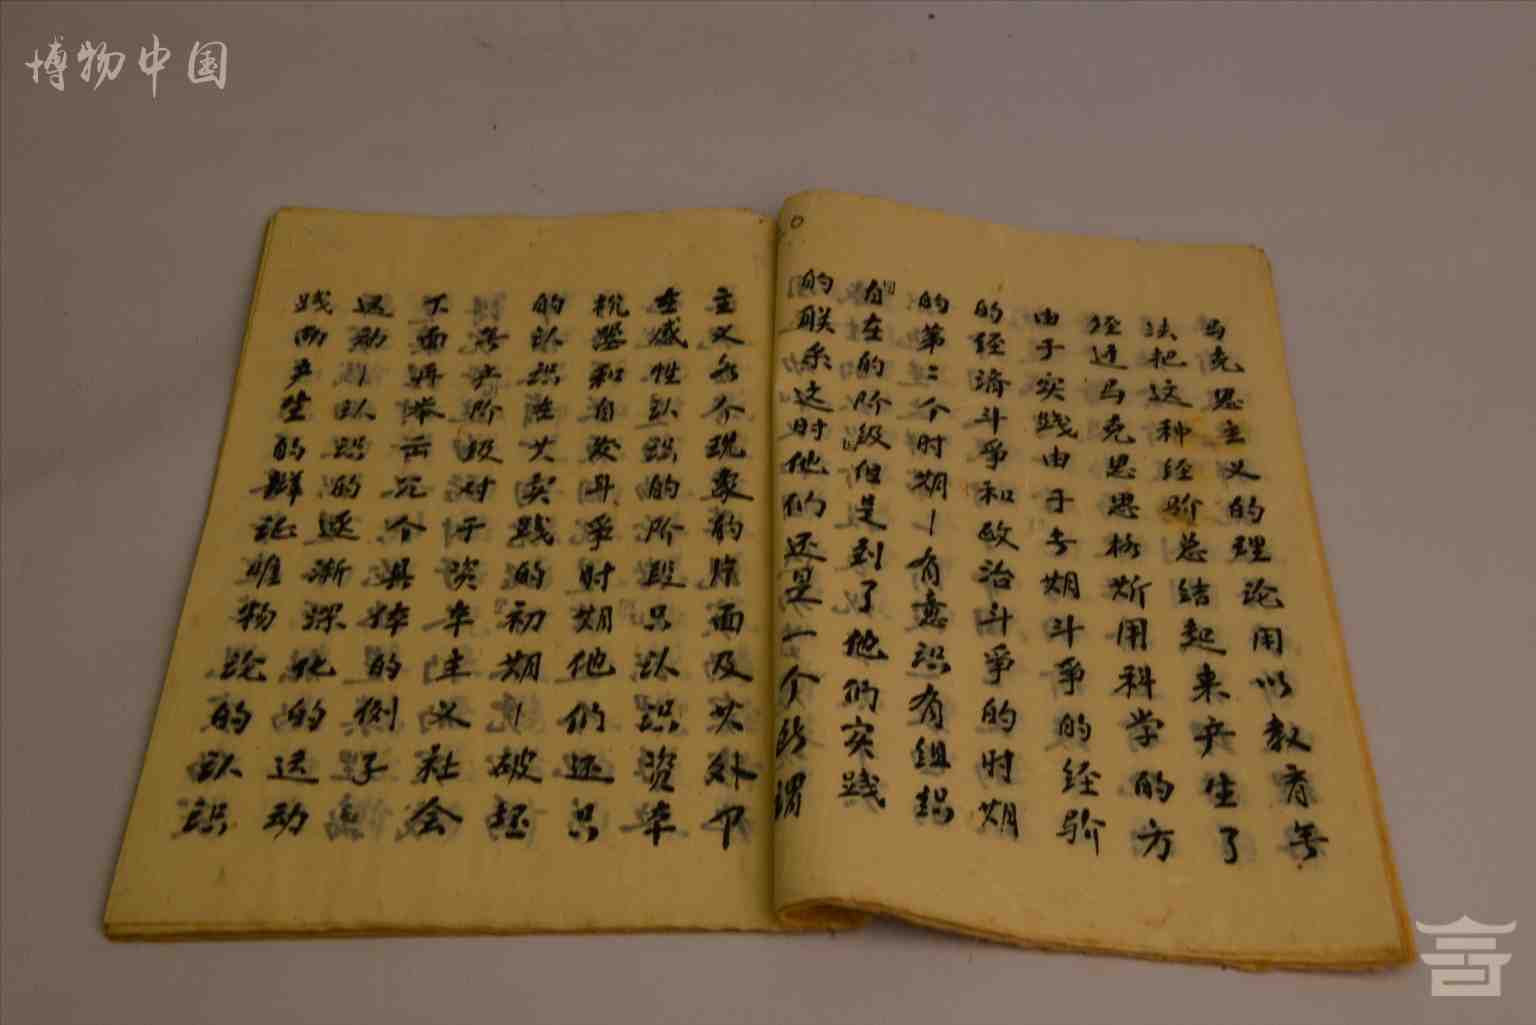 博物中国
践而产生的辩证唯物论的认识
运动—认识的逐渐深化的运动
下面再举出几个具体的例子
无产阶级对于资本主义社会
的认识在其实践的初期—破坏
机器和自发斗争时期他们还只
在感性认识的阶段只认识资本
主义各个现象的片面及其外卩
的联系这时他们还是一个所谓
「自在的阶级」但是到了他们实践
的第二个时期—有意识有组织
的经济斗争和政治斗争的时期
由于实践由于长期斗争的经验
经过马克思恩格斯用科学的方
法把这种经验总结起来产生了
马克思主义的理论用以教育无